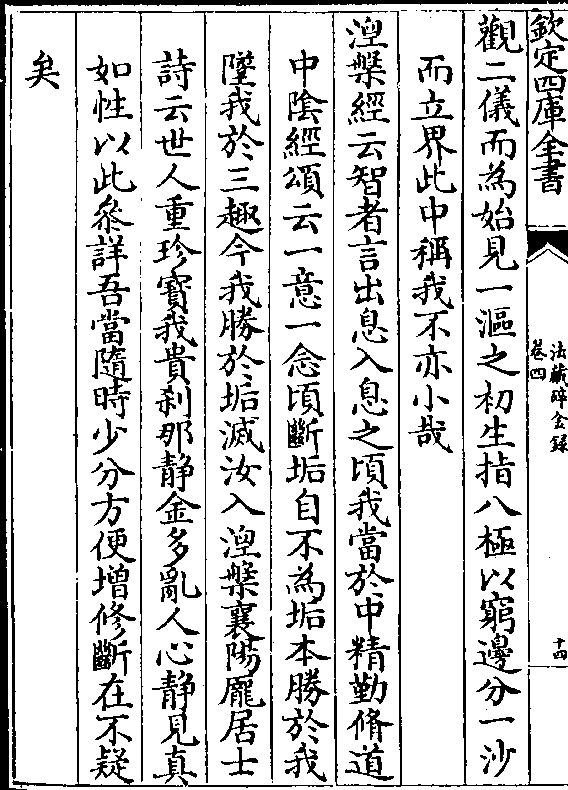 欽定四庫全書
法藏碎金錄
卷四
十四
觀二儀而為始見一漚之初生指八極以窮邊分一沙
而立界此中稱我不亦小哉
湼槃經云智者言出息入息之頃我當於中精勤脩道
中陰經頌云一意一念頃斷垢自不為垢本勝於我
墜我於三趣今我勝於垢滅汝入湼槃襄陽龎居士
詩云世人重珍寶我貴刹那静金多亂人心静見真
如性以此叅詳吾當隨時少分方便增修斷在不疑
矣